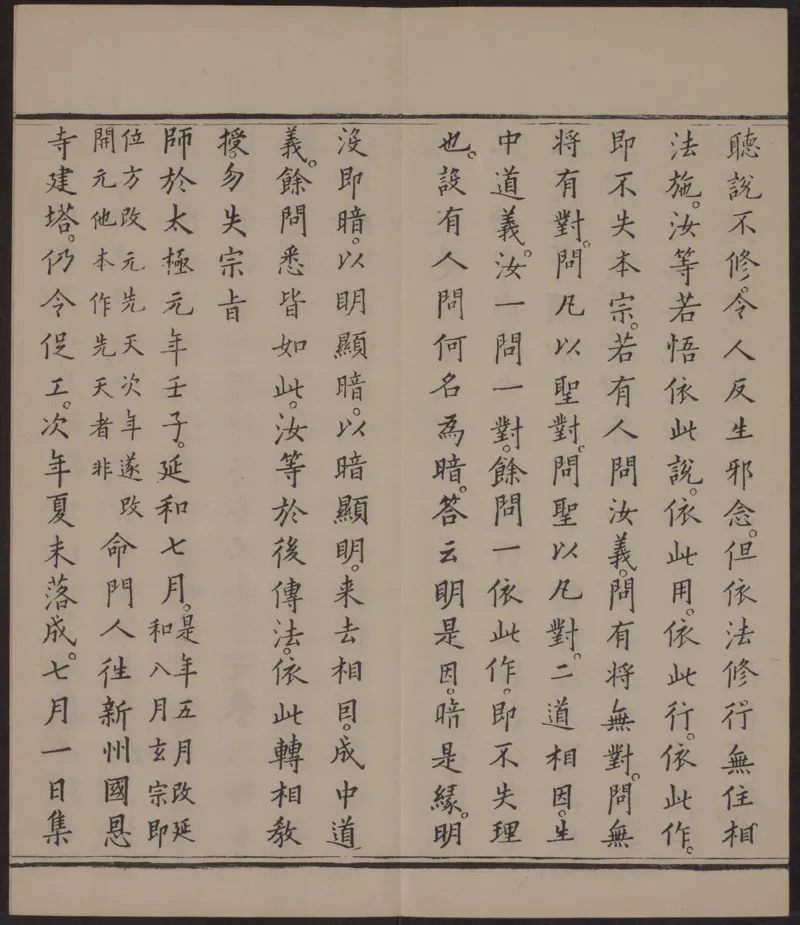 聽說不修。令人反生邪念。但依法修行。無住相
法施。汝等若悟依此說。依此用。依此行。依此作。
即不失本宗。若有人問汝義。問有將無對。問無
將有對。問凡以聖對。問聖以凡對。二道相因。生
中道義。汝一問一對。餘問一依此作。即不失理
也。設有人問何名為暗。答云明是因。暗是緣。明
沒即暗。以明顯暗。以暗顯明。来去相因。成中道
義。餘問悉皆如此。汝等於後傳法。依此轉相教
授。勿失宗旨
師於太極元年壬子。延和七月。是年五月改延
和八月玄宗即
位方改元先天次年遂改
開元他本作先天者非
命門人徃新州國恩
寺建塔。仍令促工。次年夏末落成。七月一日集